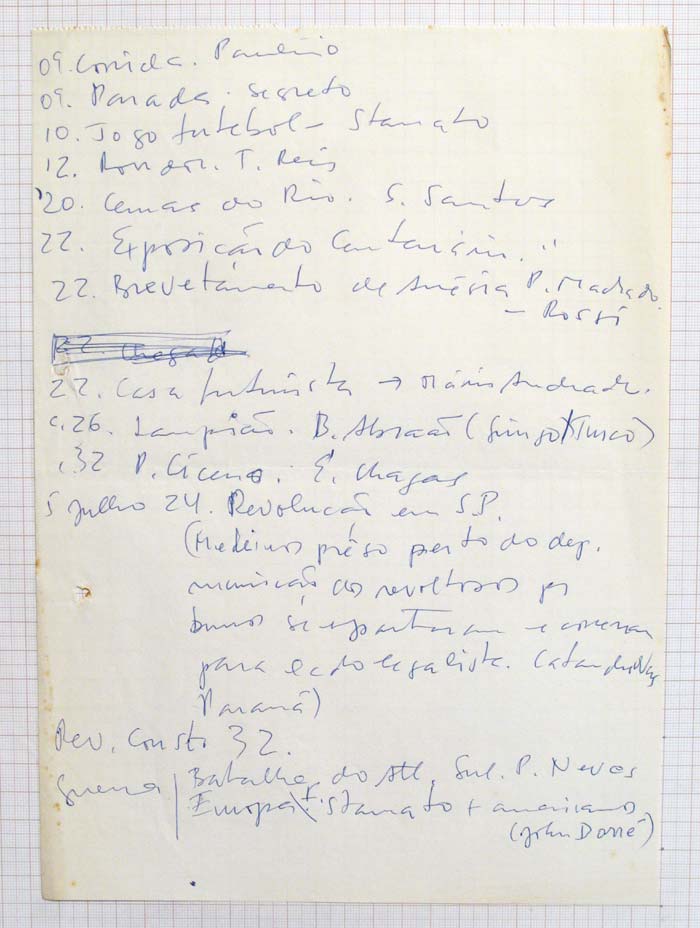 09. Corrida. Paulino
09. Parada. Segreto
10. Jogo futebol - Stamato
12. Rondon. T. Reis
20. Cenas do Rio. S. Santos
22. Exposição do Centenário. "
22. Brevetamento de Anésia P. Machado.
- Rossi
22. Chegada
22. Casa futurista → Mário Andrade.
c.26. Lampião. B. Abraão (Gringo) (Turco)
c.32 P. Cícero. E. Chagas
5 julho 24. Revolução em S.P.
(Medeiros prêso perto do dep.
munição dos revoltosos
burros se espantaram e correram
para lado legalista. Catanduvas
Paraná)
Rev. Const. 32.
Guerra | Batalha do Atl. Sul. P. Neves
Europa Stamato + americanos
(John Dorré)